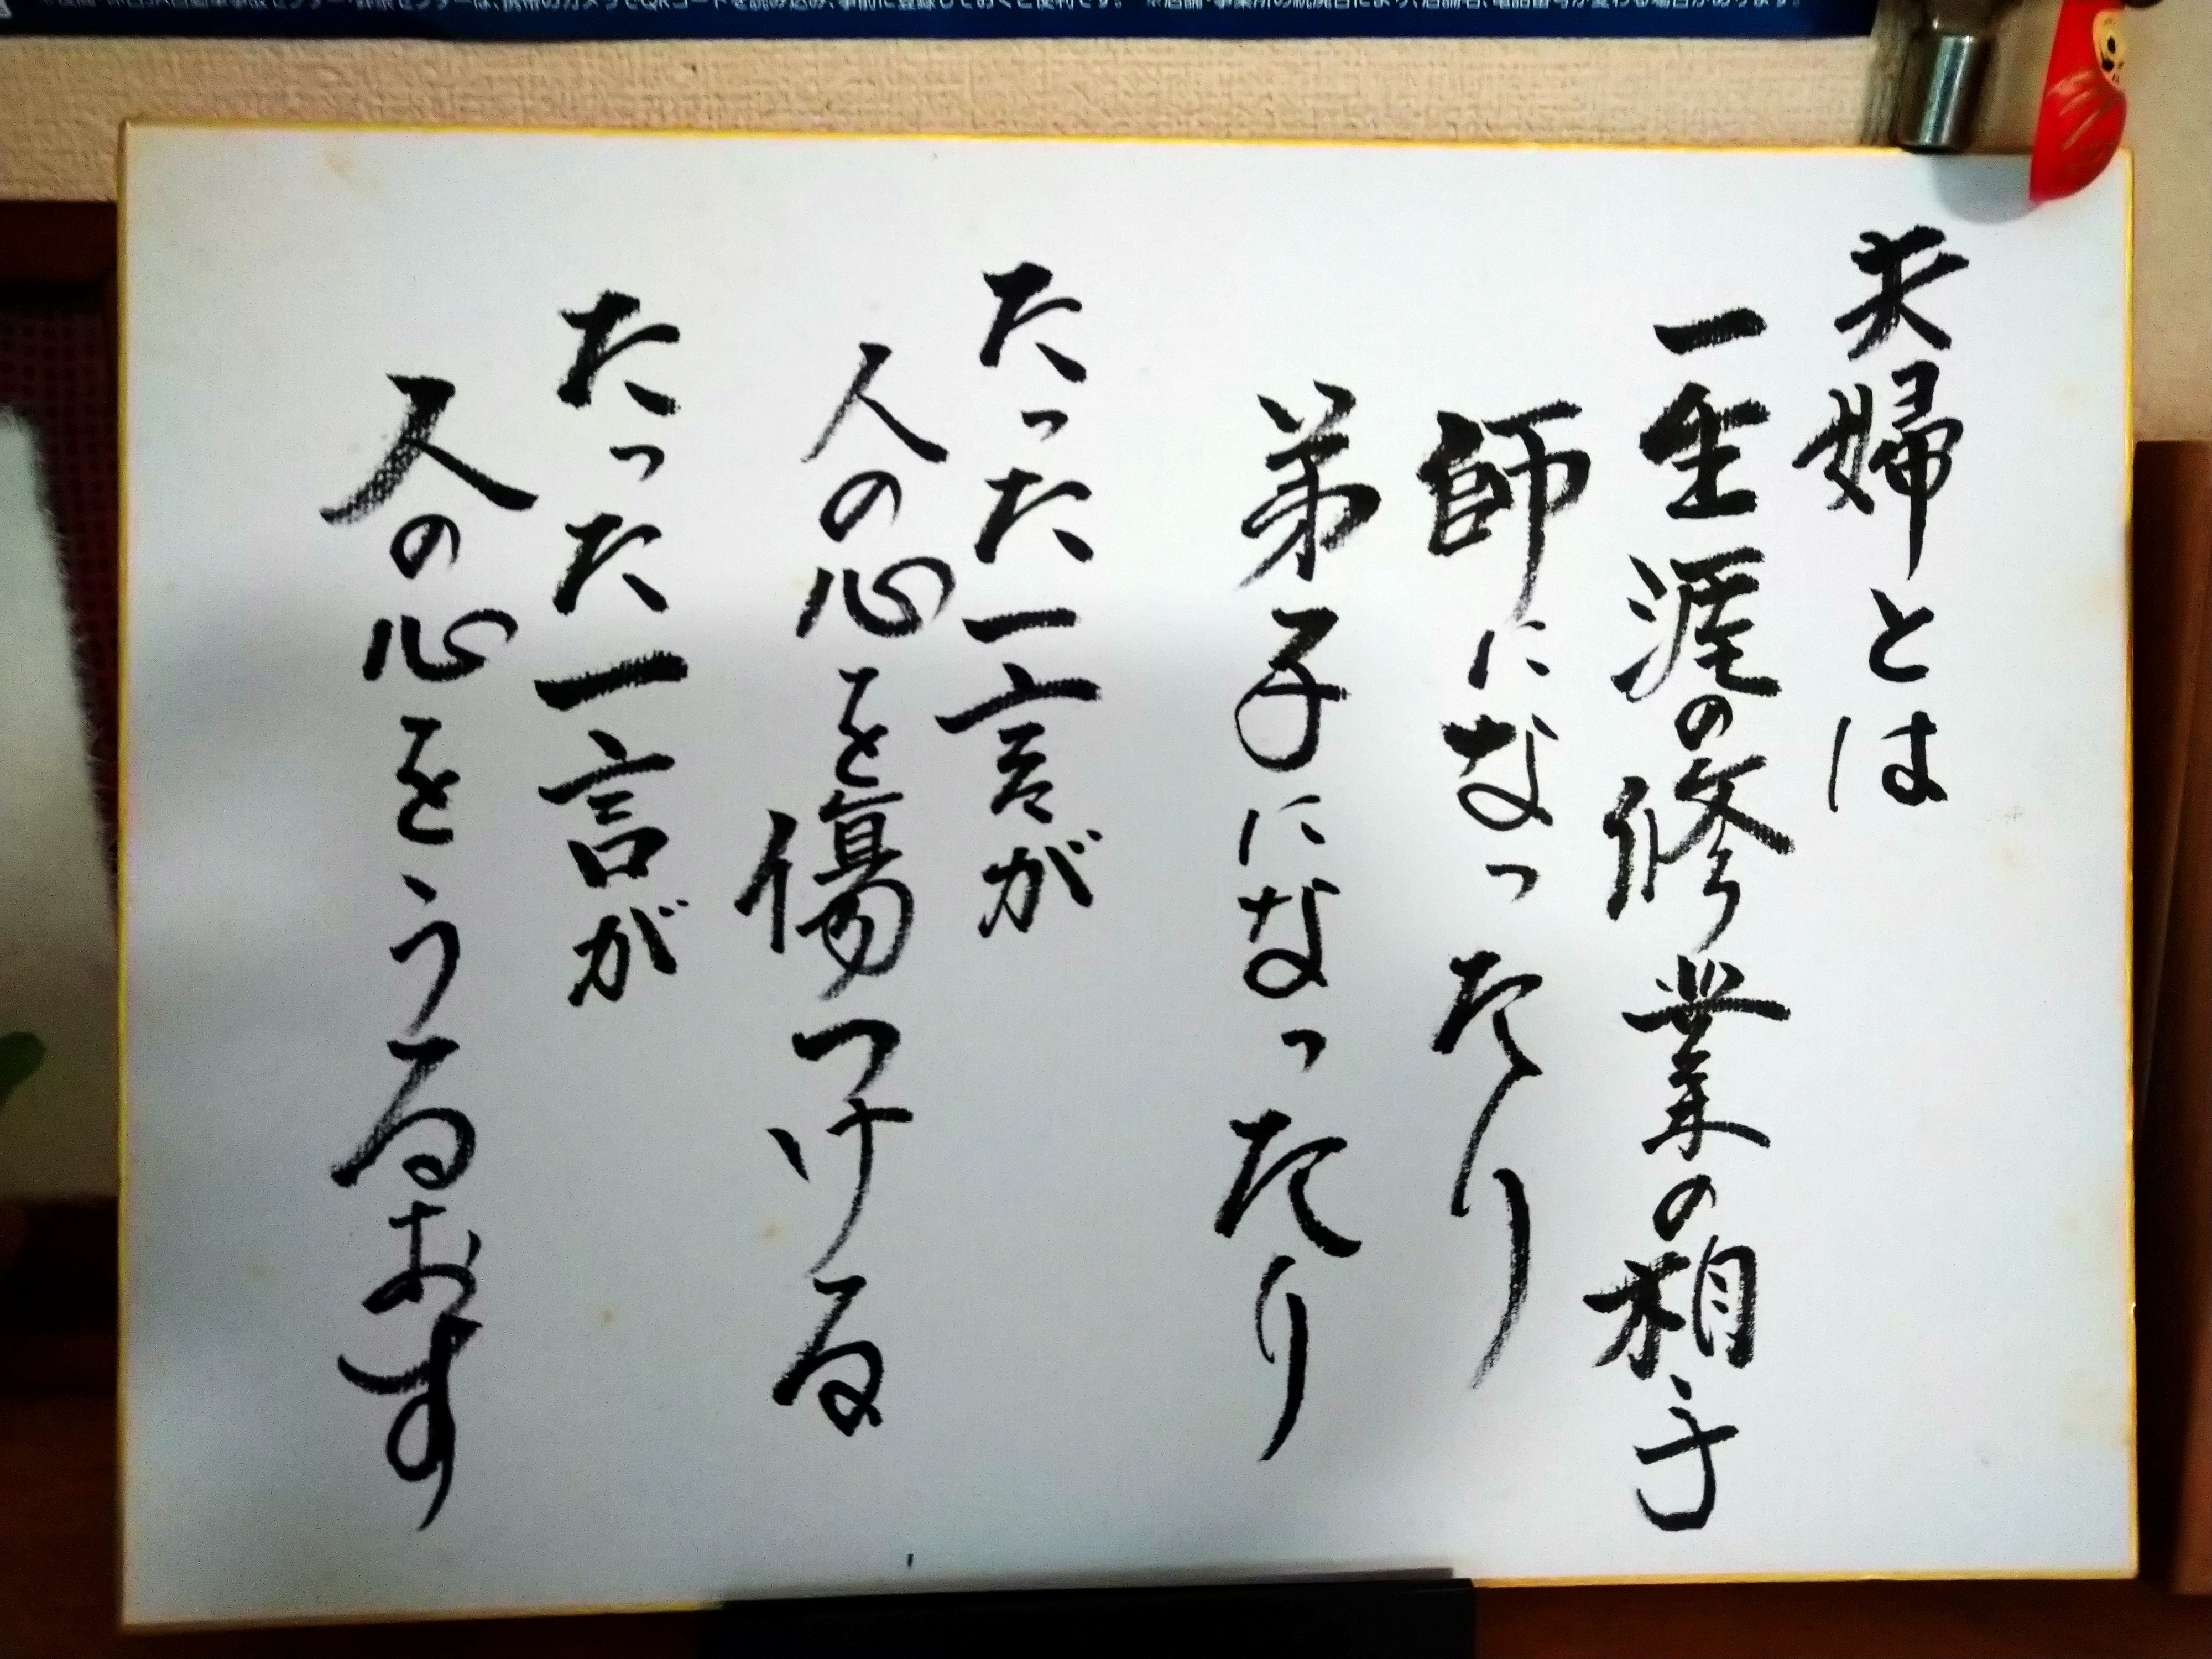 夫婦とは
一生涯の修業の相手
師になったり
弟子になったり
たった一言が
人の心を傷つける
たった一言が
人の心をうるおす